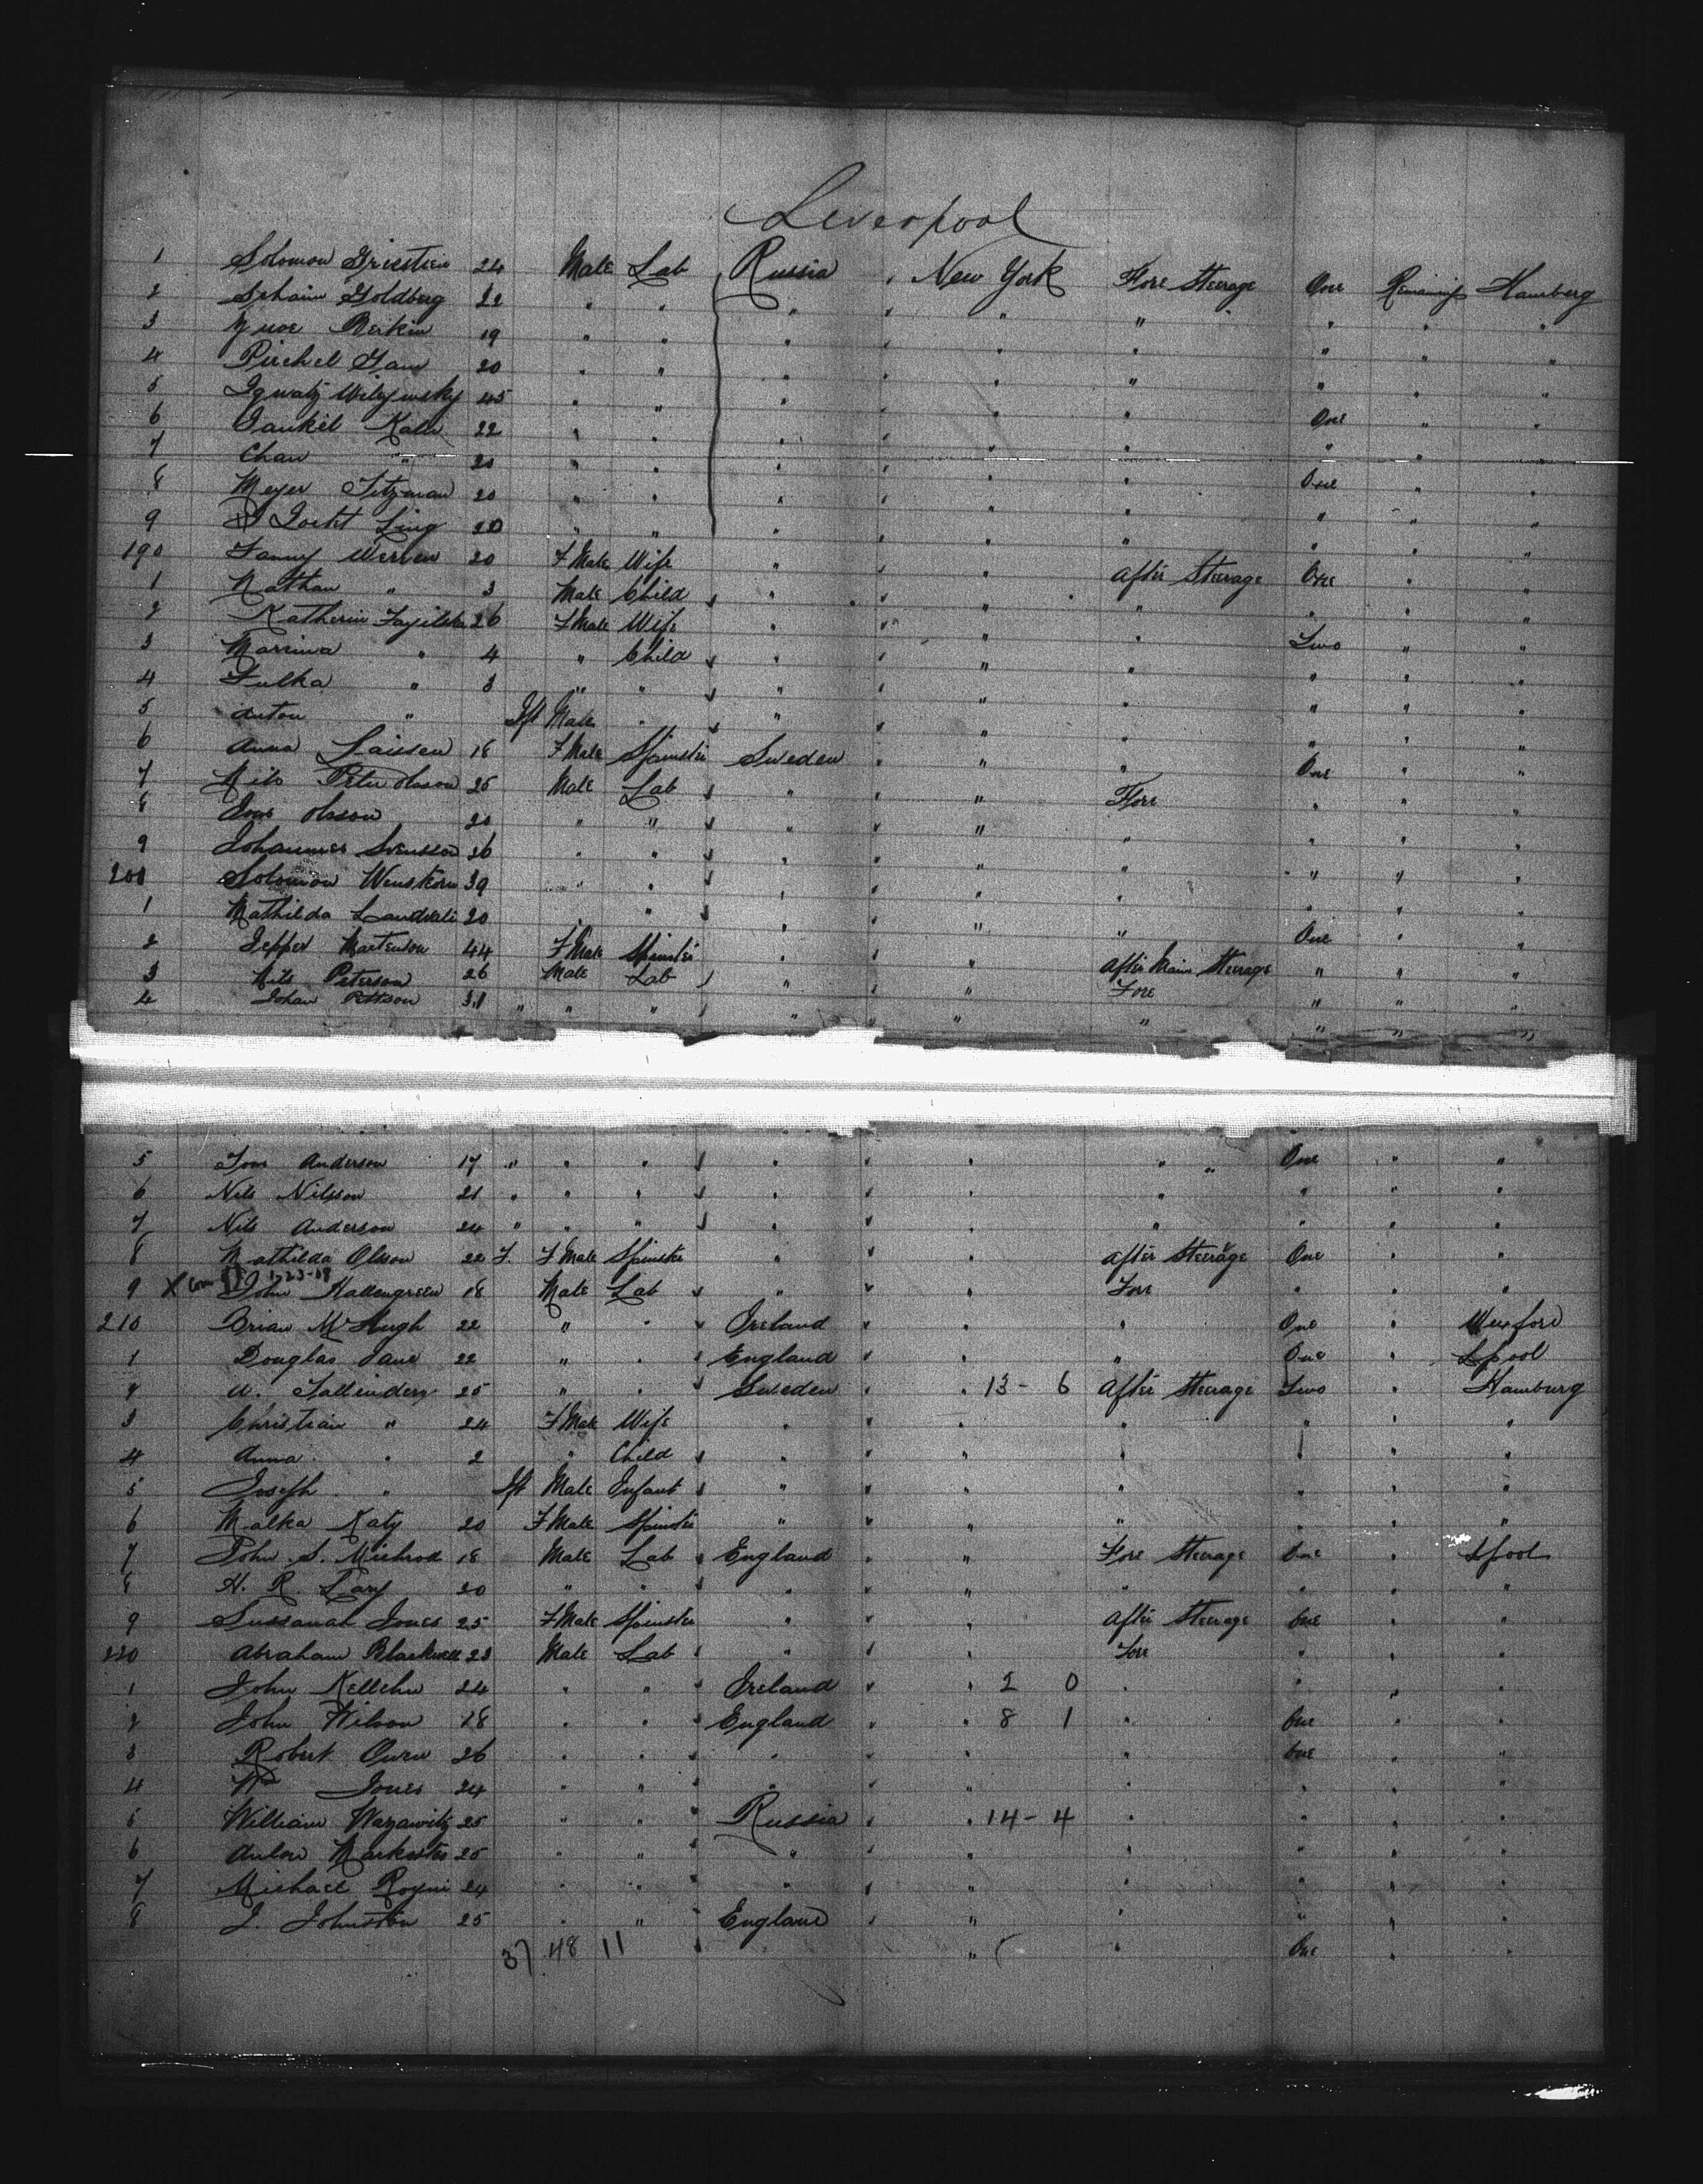 Liverpool
1 Solomon Grinstein 24 Male Lab Russia New York Fore Steerage One Remaining Hamberg
2 Schaim Goldberg 22 " " " " " " " "
3 Berkin 19 " " " " " " " "
4 Pirchel 20 " " " " " " " "
5 Ignatz 45 " " " " " One " "
6 Jankel Kalw 22 " " " " " " " "
7 Chaw " 20 " " " " " One " "
8 Meyer Titzman 20 " " " " " " " "
9 Ling 20 " " " " " " " "
190 Fanny Werren 20 F Male Wife " " After Steerage One " "
1 Nathan " 3 Male Child " " " " " "
2 Katherin 26 F Male Wife " " " Two " "
3 Marrina " 4 " Child " " " " " "
4 Julka " 3 " " " " " " " "
5 Anton " Ift Male " " " " " " "
6 Anna Laissen 18 F Male Spinster Sweden " " One " "
7 Nils Peter Olsson 25 Male Lab " " Fore " " "
8 Olsson 20 " " " " " " " "
9 Johannes Svensson 26 " " " " " " " "
200 Solomon Wenstorm 39 " " " " " " " "
1 Mathilda 20 " " " " One " "
2 Jeppes Martenson 44 F Male Spinster " " After Main Steerage " " "
3 Nils Peterson 26 Male Lab " " Fore " " "
4 Johan Pettson 31 " " " " " " " " "
5 Anderson 17 " " " " " " One " "
6 Nils Nilsson 21 " " " " " " " " "
7 Nils Anderson 24 " " " " " " " " "
8 Mathilda Olsson 22 F. F Male Spinster " " After Steerage One " "
1-23-18
9 X John Kallengreen 18 Male Lab " " Fore " " "
210 Brian McHugh 22 " " Ireland " " One " Wexford
1 Douglas Jane 22 " " England " " One " Lpool
2 Tallinders 25 " " Sweden " 13 - 6 After Steerage Two " Hamburg
3 Christian " 24 F Male Wife " " " " " "
4 Anna " 2 " Child " " " " "
5 Joseph " Ift Male Infant " " " " " "
6 Malka Katz 20 F Male Spinster " " " " " "
7 John S. 18 Male Lab England " Fore Steerage One " Lpool
8 H. R. 20 " " " " " " " "
9 Sussanah Jones 25 F Male Spinster " " After Steerage One " "
220 Abraham Blackwell 23 Male Lab " " Fore " " "
1 John Kelleher 24 " " Ireland " 2 0 " " " "
2 John Wilson 18 " " England " 8 1 " One " "
3 Robert Owen 26 " " " " " One " "
4 Wm Jones 24 " " " " " " " "
5 William Wazawitz 25 " " Russia " 14 - 4 " " " "
6 Markester 25 " " " " " " " "
7 Michael 24 " " " " " " " "
8 J. Johnston 25 " " England " " " " "
37 48 11 " " One " "